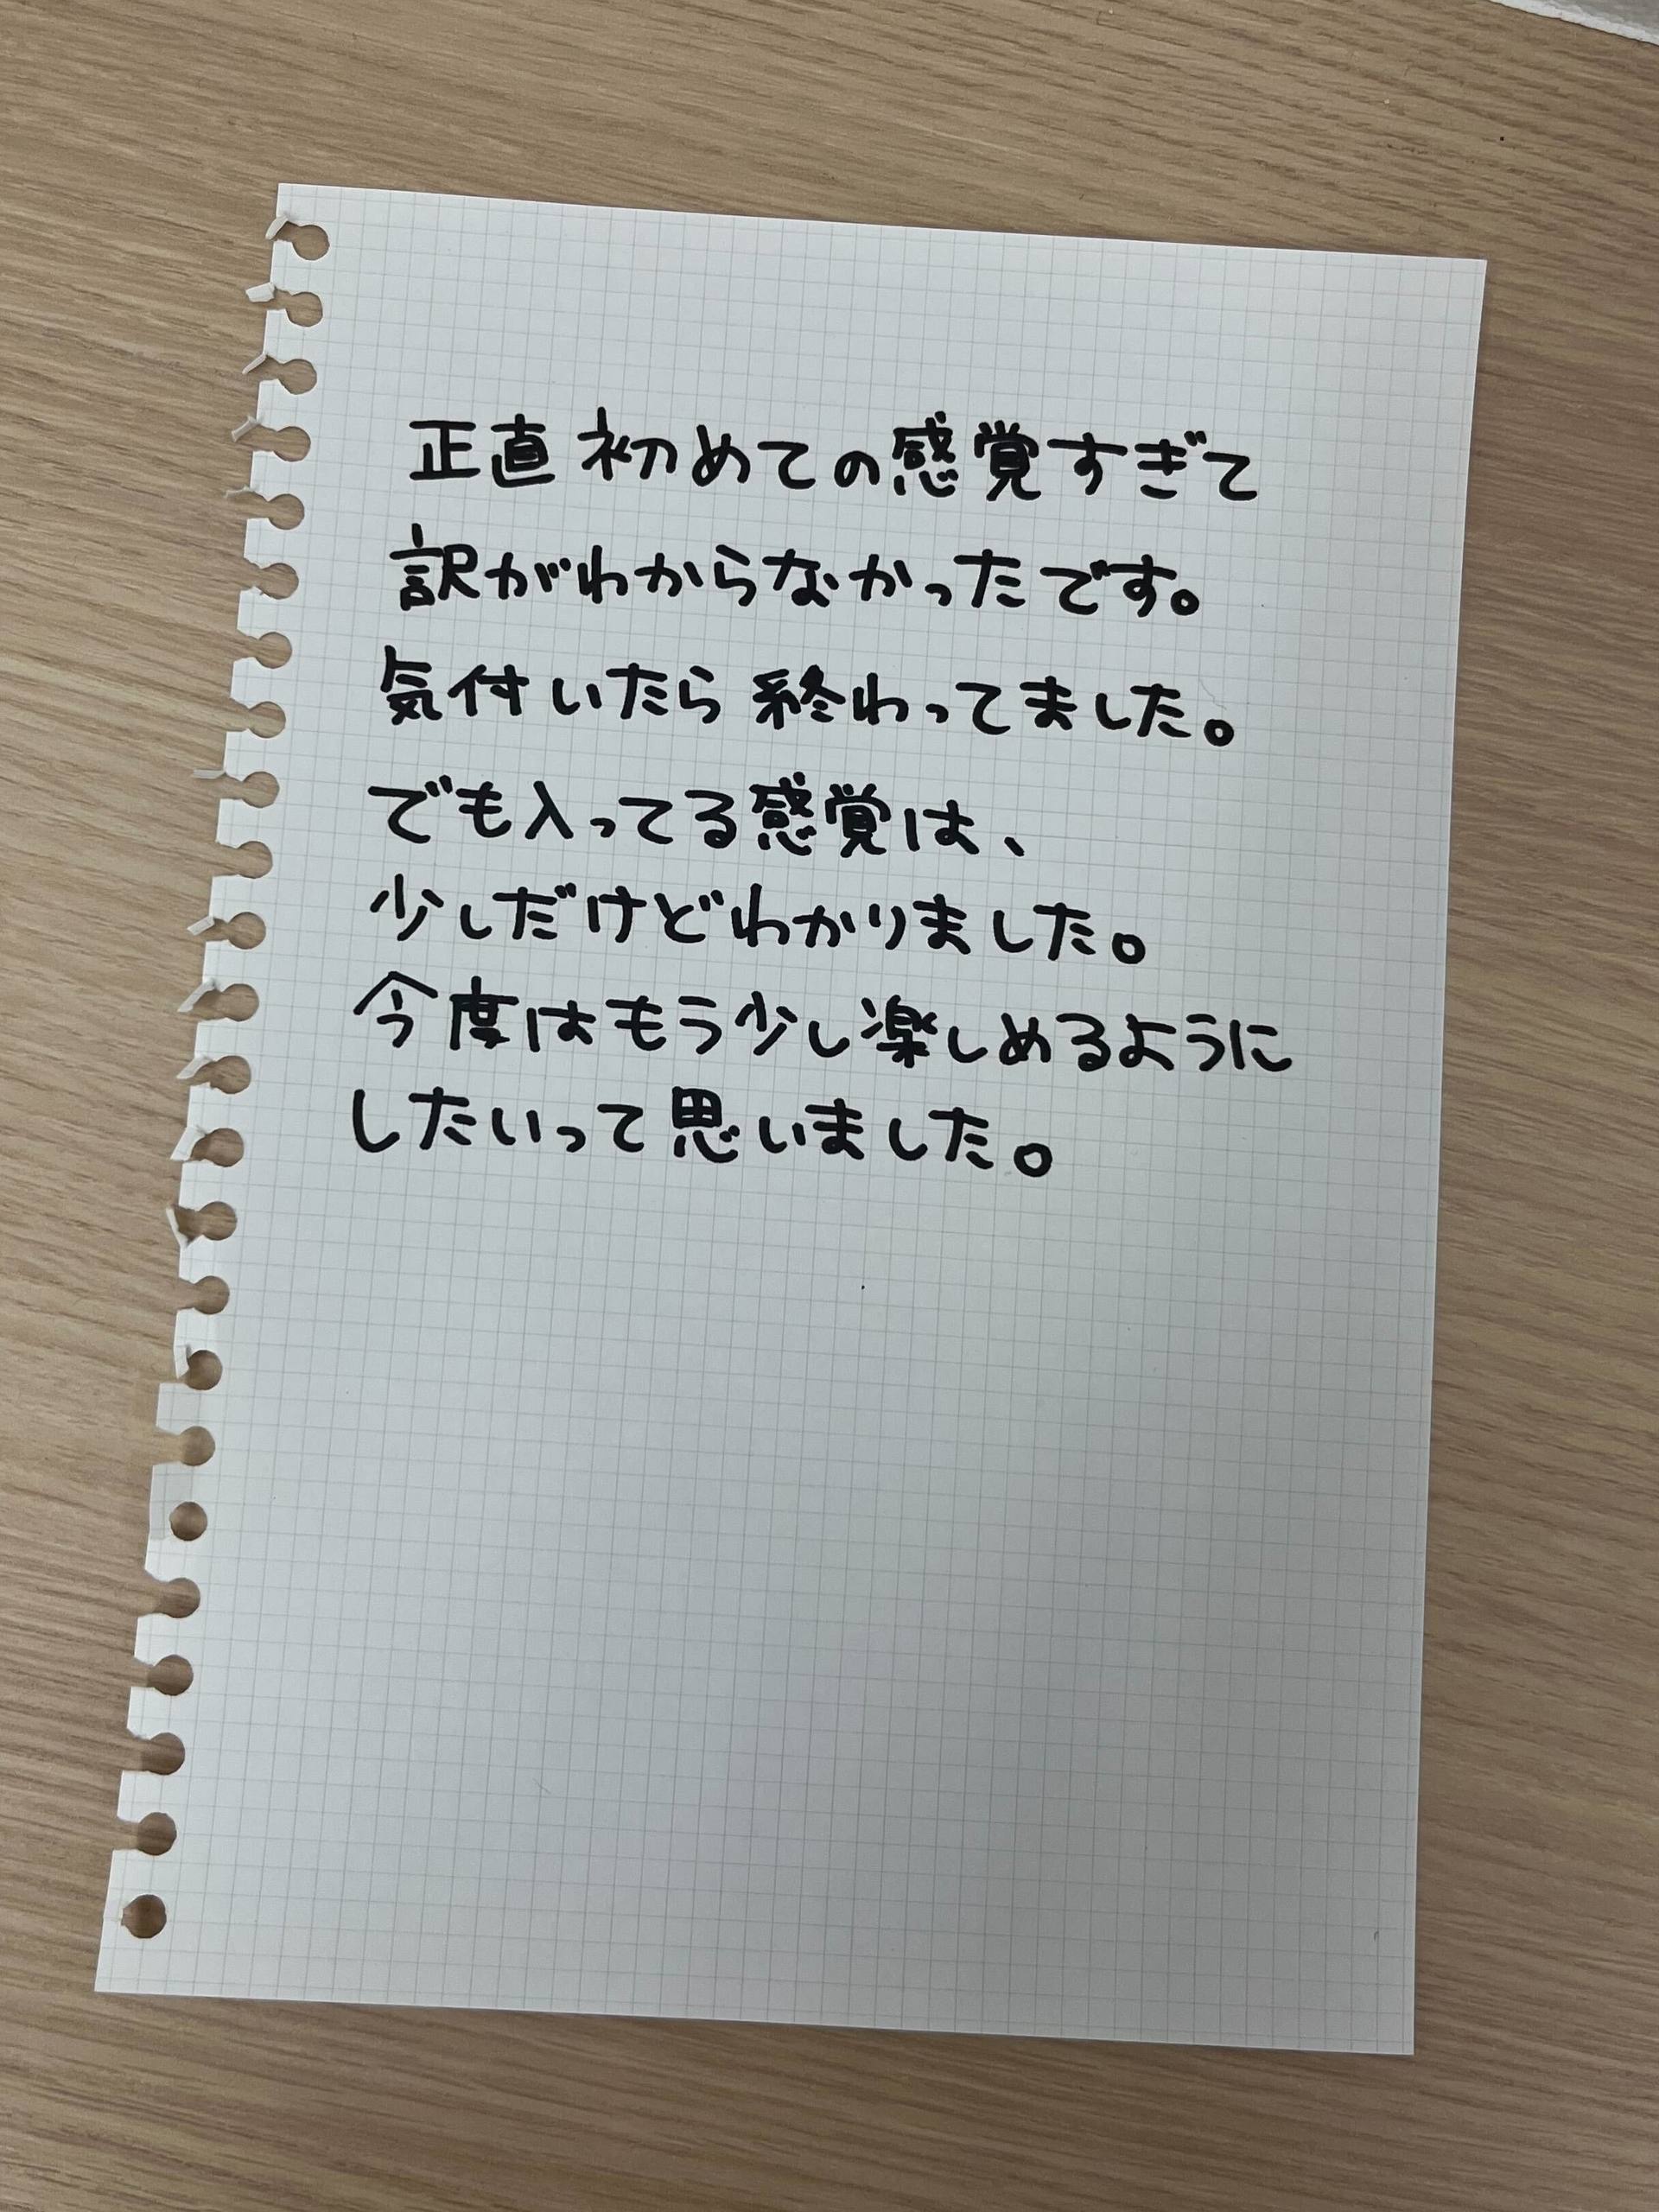 正直初めての感覚すぎて
訳がわからなかったです。
気付いたら終わってました。
でも入ってる感覚は、
少しだけどわかりました。
今度はもう少し楽しめるように
したいって思いました。